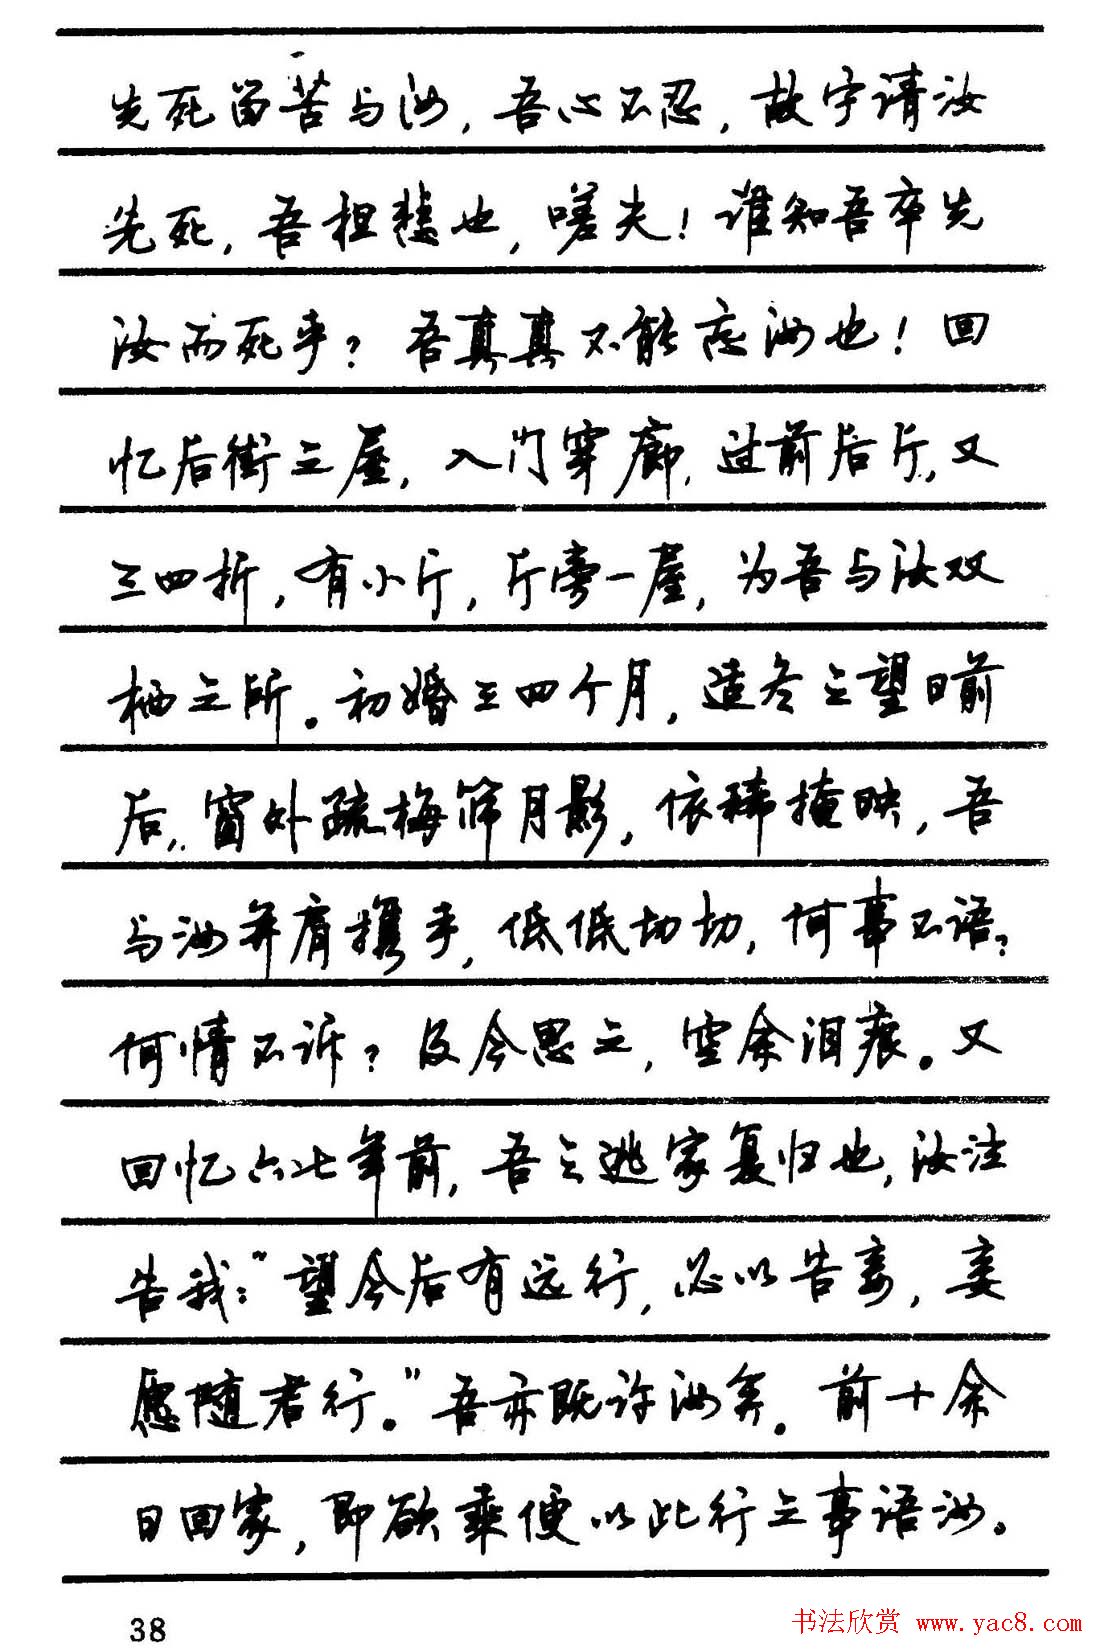 先死留苦与汝，吾心不忍，故宁请汝
先死，吾担悲也，嗟夫！谁知吾卒先
汝而死乎？吾真真不能忘汝也！回
忆后街之屋，入门穿廊，过前后厅，又
三四折，有小厅，厅旁一屋，为吾与汝双
栖之所。初婚三四个月，适冬之望日前
后，窗外疏梅筛月影，依稀掩映，吾
与汝并肩携手，低低切切，何事不语？
何情不诉？及今思之，空余泪痕。又
回忆六七年前，吾之逃家复归也，汝泣
告我：“望今后有远行，必以告妾，妾
愿随君行。”吾亦既许汝矣。前十余
日回家，即欲乘便以此行之事语汝。
38
书法欣赏 www.yac8.com